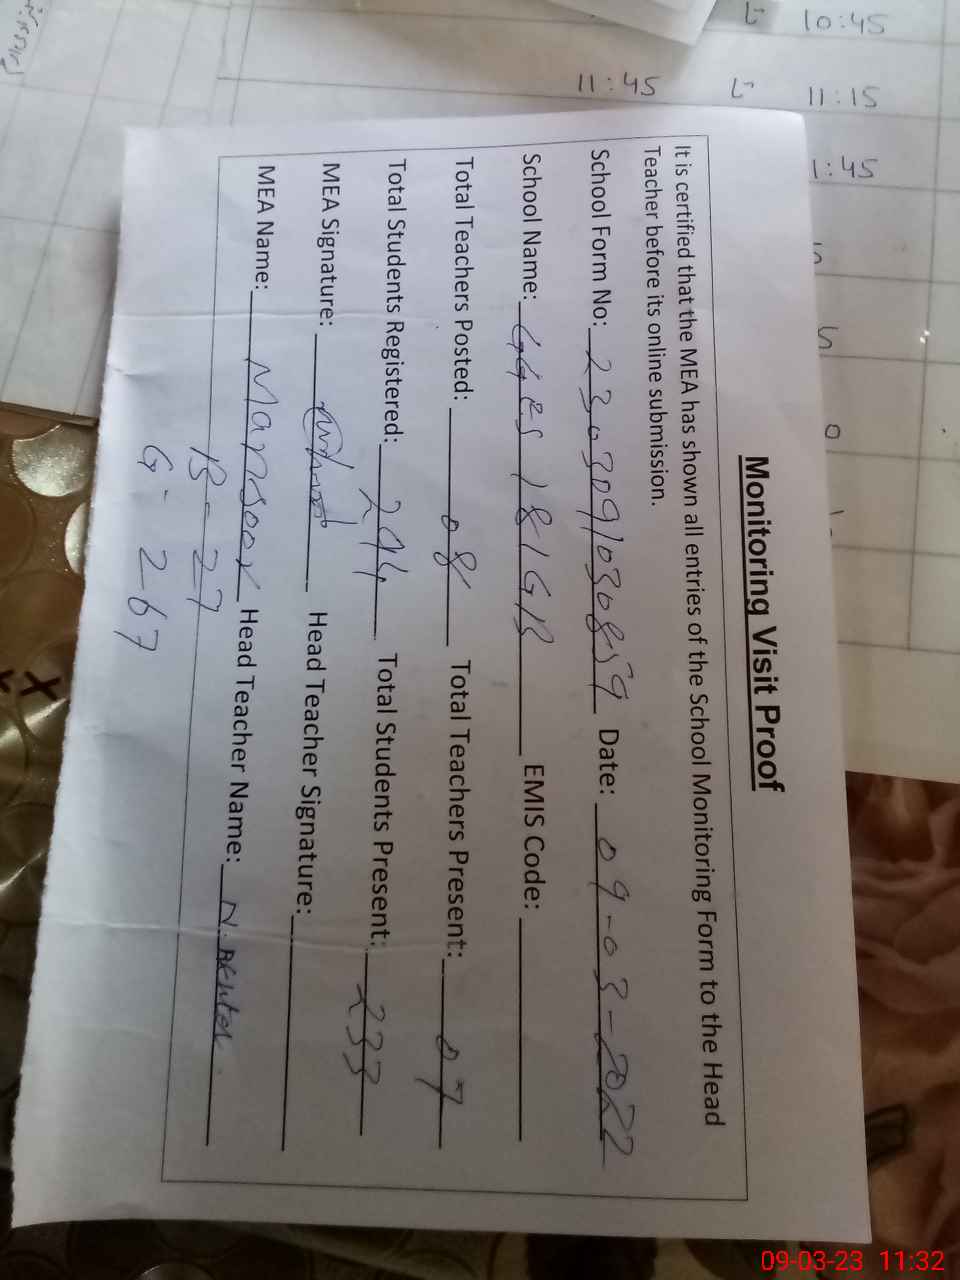 Monitoring Visit Proof
It is certified that the MEA has shown all entries of the School Monitoring Form to the Head
Teacher before its online submission.
School Form No: 23030910308459 Date: 09-03-2022
School Name: GGES 181GB EMIS Code:
Total Teachers Posted: 08 Total Teachers Present: 07
Total Students Registered: 294 Total Students Present: 233
MEA Signature: Head Teacher Signature:
MEA Name: Mansoor Head Teacher Name:
B- 27
G- 267
10:45
11:45 11:15
1:45
09-03-23 11:32